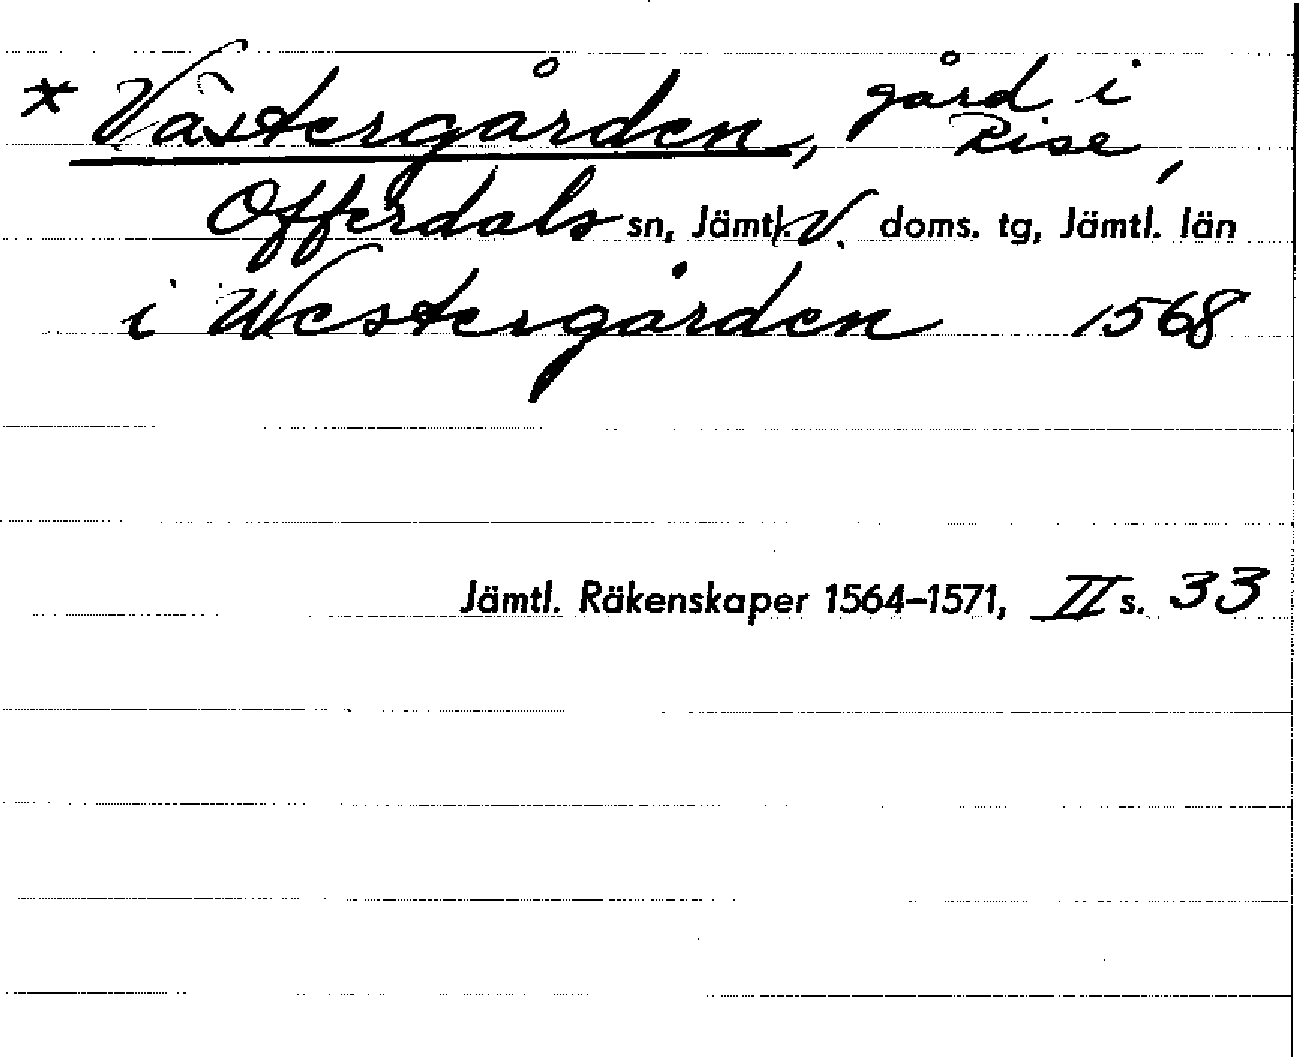 * Västergården, gård i
Rise,
Offerdals sn, Jämtl. V. doms. tg, Jämtl. län
i Westergården 1568
Jämtl. Räkenskaper 1564–1571, II s. 33